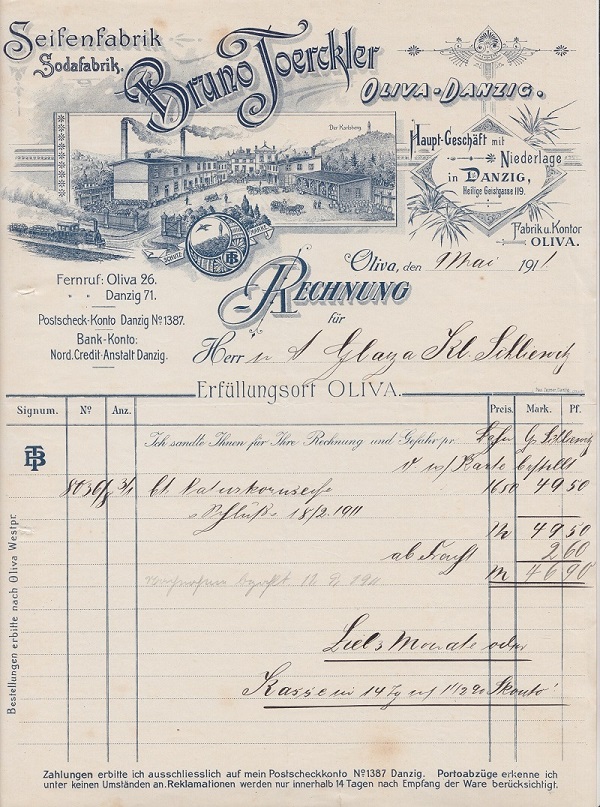 Seifenfabrik
Sodafabrik.
Bruno Toerckler
OLIVA-DANZIG.
Der Karlsberg
Haupt-Geschäft mit
Niederlage
in DANZIG,
Heilige Geistgasse 119.
Fabrik u. Kontor
OLIVA.
SCHUTZ MARKE
TB
Fernruf: Oliva 26.
" " Danzig 71.
Postscheck-Konto Danzig No 1387.
Bank-Konto:
Nord. Credit-Anstalt Danzig.
Oliva, den Mai 1911.
RECHNUNG
für
Herr Kl. Schliewitz
Erfüllungsort OLIVA.
Signum. No Anz. Preis. Mark. Pf.
Ich sandte Ihnen für Ihre Rechnung und Gefahr pr.
Karte bestellt
TB
3/1 Ct. Naturkornseife 1650 49 50
Schluß 18/2. 1911
M 49 50
ab Fracht 2 60
M 46 90
Ziel 3 Monate oder
Kasse in 14 Tg 1 1/2 % Skonto
Bestellungen erbitte nach Oliva Westpr.
Zahlungen erbitte ich ausschliesslich auf mein Postscheckkonto No 1387 Danzig. Portoabzüge erkenne ich
unter keinen Umständen an. Reklamationen werden nur innerhalb 14 Tagen nach Empfang der Ware berücksichtigt.